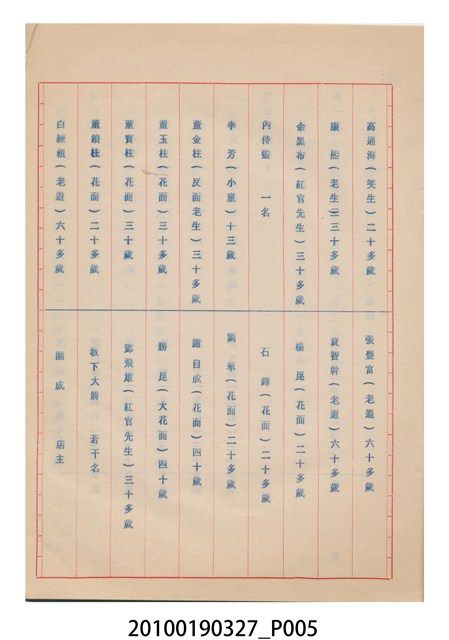 高通海(笑生)二十多歲
康熙(老生)三十多歲
余墨布(紅官先生)三十多歲
內侍監 一名
李芳(小童)十三歲
董金柱(反面老生)三十多歲
董玉柱(花面)三十多歲
董寶柱(花面)三十歲
董鎖柱(花面)二十多歲
白練祖(老道)六十多歲
張豐富(老道)六十多歲
袁智幹(老道)六十多歲
楊昆(花面)二十多歲
石鐸(花面)二十多歲
劉華(花面)二十多歲
自成(花面)四十歲
勝昆(大花面)四十歲
鄧飛雄(紅官先生)三十多歲
教下大將 若干名
成 店主
20100190327_P005